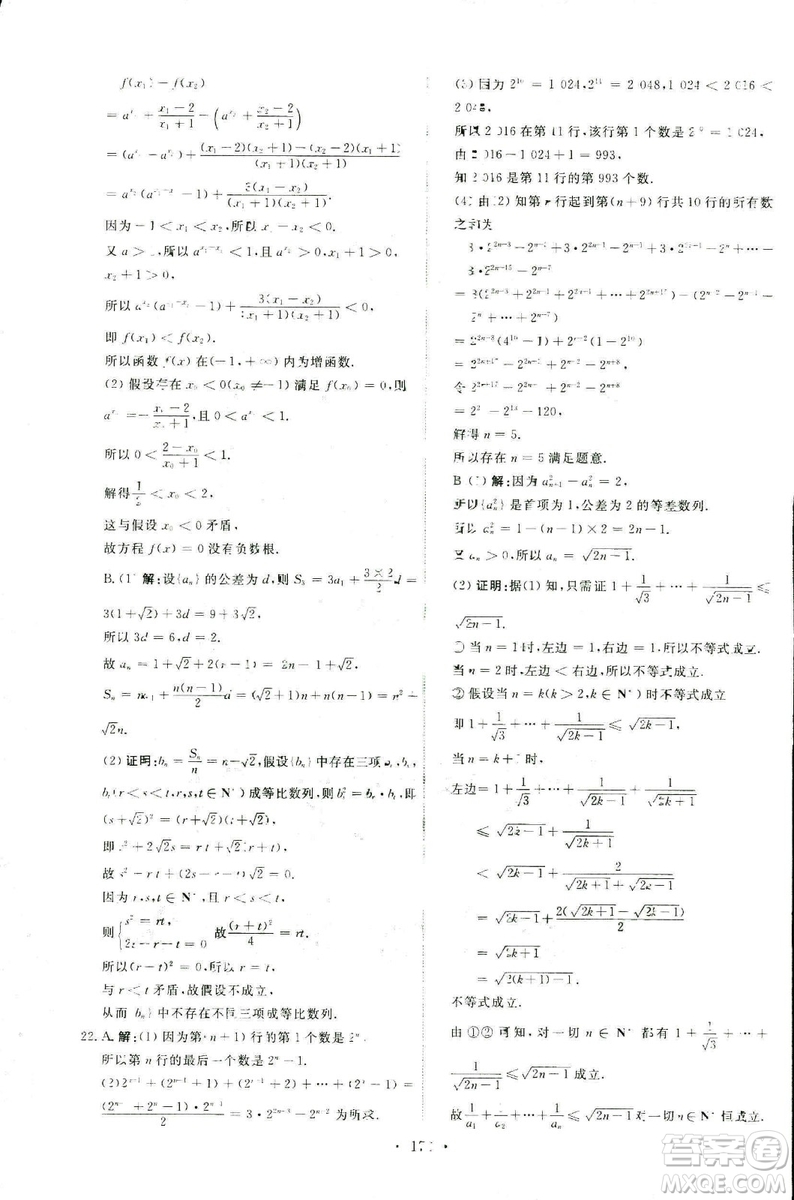 f(x₁)-f(x₂)
=a^{x₁}+\frac{x₁-2}{x₁+1}-(a^{x₂}+\frac{x₂-2}{x₂+1})
=(a^{x₁}-a^{x₂})+\frac{(x₁-2)(x₂+1)-(x₂-2)(x₁+1)}{(x₁+1)(x₂+1)}
=(a^{x₁}-a^{x₂})+\frac{3(x₁-x₂)}{(x₁+1)(x₂+1)}
因为-1<x₁<x₂,所以x₁-x₂<0.
又a>1,所以a^{x₁-x₂}<1,a^{x₂}>0,x₁+1>0,
x₂+1>0,
所以a^{x₂}(a^{x₁-x₂}-1)+\frac{3(x₁-x₂)}{(x₁+1)(x₂+1)}<0,
即f(x₁)<f(x₂).
所以函数f(x)在(-1,+∞)内为增函数.
(2)假设存在x₀<0(x₀≠-1)满足f(x₀)=0,则
a^{x₀}=-\frac{x₀-2}{x₀+1},且0<a^{x₀}<1.
所以0<\frac{2-x₀}{x₀+1}<1.
解得\frac{1}{2}<x₀<2,
这与假设x₀<0矛盾,
故方程f(x)=0没有负数根.
B.(1)解:设{aₙ}的公差为d,则S₃=3a₁+\frac{3×2}{2}d=
3(1+√2)+3d=9+3√2.
所以3d=6,d=2.
故aₙ=1+√2+(n-1)×2=2n-1+√2.
Sₙ=na₁+\frac{n(n-1)}{2}d=(√2+1)n+n(n-1)=n²+
√2n.
(2)证明:bₙ=\frac{Sₙ}{n}=n+√2,假设{bₙ}中存在三项
(r<s<t,r,s,t∈N*)成等比数列,则
(s+√2)²=(r+√2)(t+√2),
即s²+2√2s=rt+√2(r+t),
故s²-rt+(2s-r-t)√2=0.
因为r,s,t∈N*,
则{s²=rt, 2s-r-t=0.  故\frac{(r+t)²}{4}=rt,
所以(r-t)²=0,r=t,
与r<t矛盾,故假设不成立.
从而{bₙ}中不存在不同三项成等比数列.
22.A.解:(1)因为第(n+1)行的第1个数是2ⁿ,
所以第n行的最后一个数是2ⁿ-1.
(2)2^{n-1}+(2^{n-1}+1)+(2^{n-1}+2)+…+(2ⁿ-1)=
\frac{(2^{n-1}+2ⁿ-1)·2^{n-1}}{2}=3·2^{2n-3}-2^{n-2}为所求.
(3)因为2¹⁰=1 024,2¹¹=2 048,1 024<2 016<
2 048,
所以2 016在第11行,该行第1个数是2¹⁰=1 024,
由2 016-1 024+1=993,
知2 016是第11行的第993个数.
(4)由(2)知第n行起到第(n+9)行共10行的所有数
之和为
3·2^{2n-3}-2^{n-2}+3·2^{2n-1}-2^{n-1}+…+
3·2^{2n+15}-2^{n+7}
=3(2^{2n-3}+2^{2n-1}+…+2^{2n+15})-(2^{n-2}+2^{n-1}
+…+2^{n+7})
=2^{2n-3}(4¹⁰-1)-2^{n-2}(2¹⁰-1)
=2^{2n+17}-2^{2n-3}+2^{n-2}-2^{n+8},
解得n=5.
所以存在n=5满足题意.
B.(1)解:因为
所以{aₙ²}是首项为1,公差为2的等差数列.
所以aₙ²=1+(n-1)×2=2n-1.
又aₙ>0,所以aₙ=\sqrt{2n-1}.
(2)证明:据(1)知,只需证1+\frac{1}{√3}+…+\frac{1}{\sqrt{2n-1}}≤
\sqrt{2n-1}.
①当n=1时,左边=1,右边=1,所以不等式成立.
当n=2时,左边<右边,所以不等式成立.
②假设当n=k(k>2,k∈N*)时不等式成立
即1+\frac{1}{√3}+…+\frac{1}{\sqrt{2k-1}}≤\sqrt{2k-1}.
当n=k+1时,
左边=1+\frac{1}{√3}+…+\frac{1}{\sqrt{2k-1}}+\frac{1}{\sqrt{2k+1}}
≤\sqrt{2k-1}+\frac{1}{\sqrt{2k+1}}
<\sqrt{2k-1}+\frac{2}{\sqrt{2k+1}+\sqrt{2k-1}}
=\sqrt{2k-1}+\frac{2(\sqrt{2k+1}-\sqrt{2k-1})}{2}
=\sqrt{2k+1}.
不等式成立.
由①②可知,对一切n∈N*都有1+\frac{1}{√3}+…+
\frac{1}{\sqrt{2n-1}}≤\sqrt{2n-1}成立.
故\frac{1}{a₁}+\frac{1}{a₂}+…+\frac{1}{aₙ}≤aₙ对一切n∈N*恒成立.
答案圈
MXQE.COM